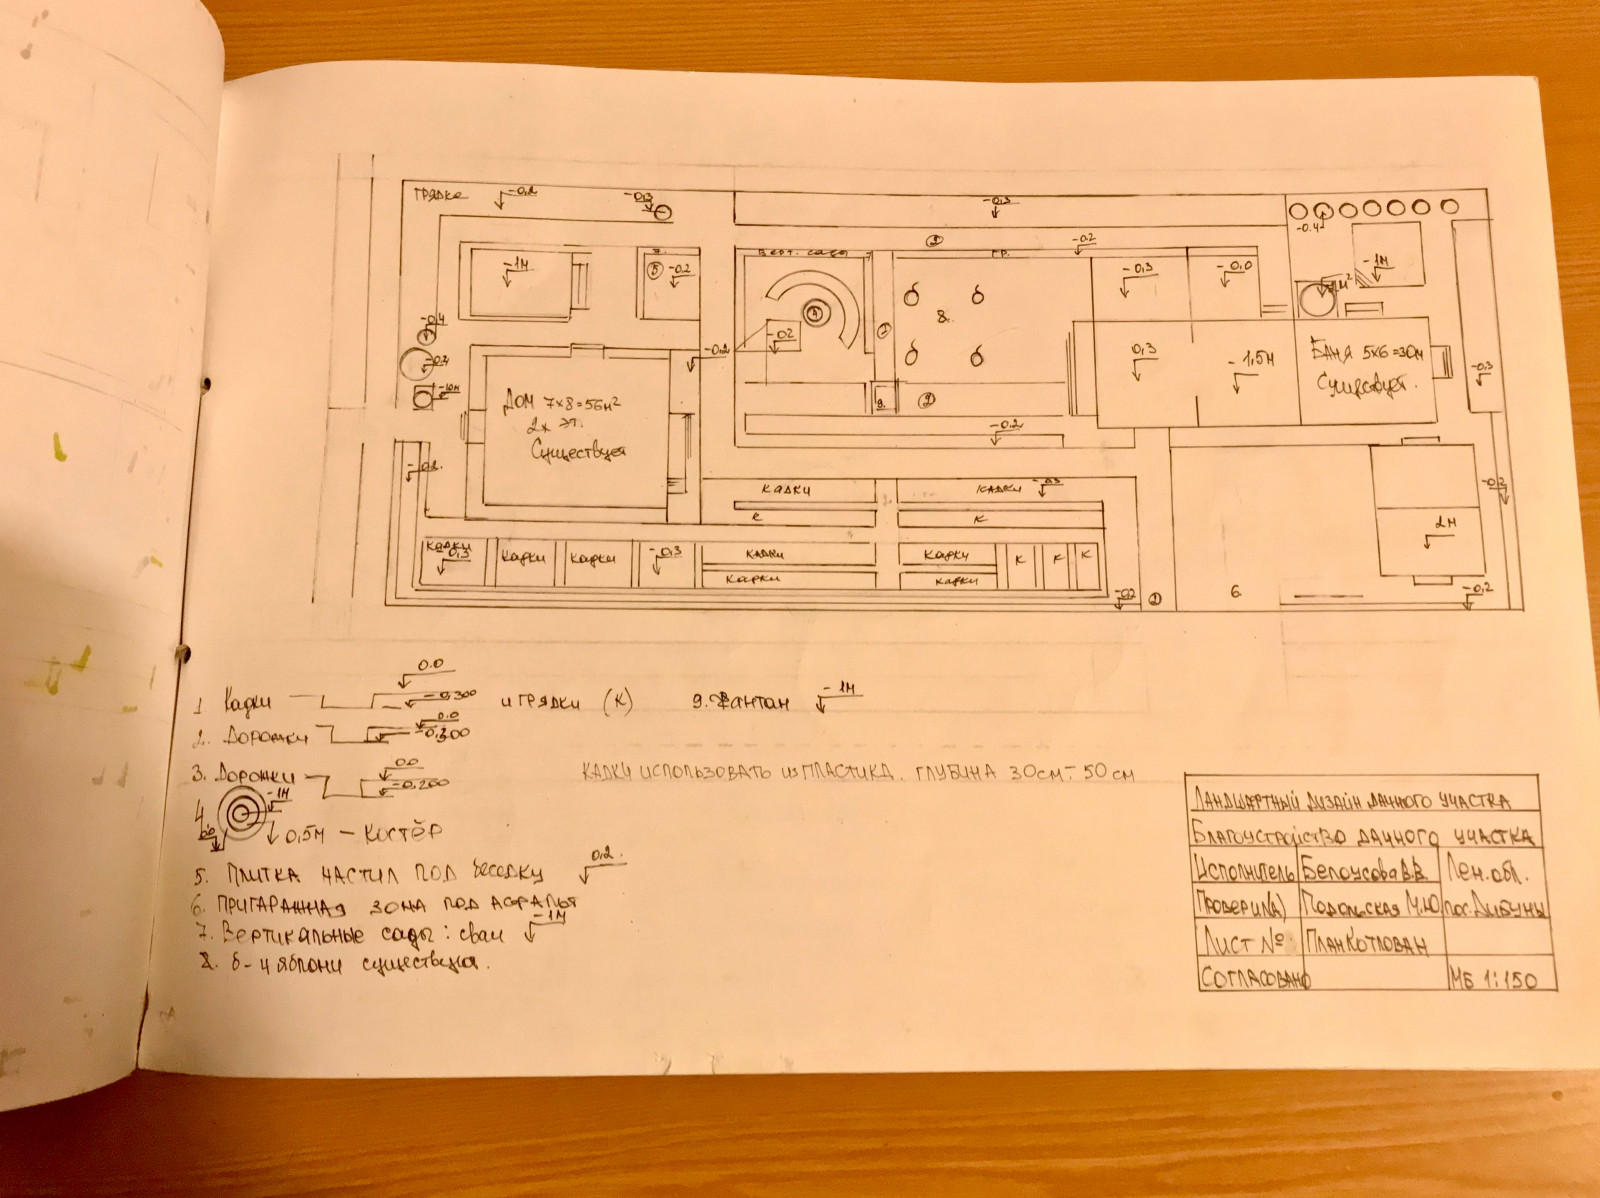 ГРЯДКе
-0,2
-0,3
-0,3
-0.4
②
-0.2
Верт. сады
7
ГР.
-1м
7.
⑤
-0.2
-0,3
-0,0
-1М
-0,4
④
②
8.
-0,2
-0,2
0,3
-1,5м
Баня 5х6=30м
Существует.
-0,3
-0.4
-10м
ДОМ 7х8=56м²
2х эт.
Существует
9.
②
-0.2
-0.2
кадки
кадки
-0.3
-0.2
к
к
2м
кадки
-0,3
кадки
кадки
-0,3
кадки
кадки
к
к
к
кадки
кадки
-0.2
②
6
-0,2
0.0
1 Кадки -0,300 и грядки (К)
9. Фантан -1м
2. Дорожки 0.0 -0,300
3. Дорожки 0.0 -0,200
КАДКИ ИСПОЛЬЗОВАТЬ ИЗ ПЛАСТИКА. ГЛУБИНА 30см-50см
4. -1м
0.0
0,5м - Костёр
5. Плитка настил под беседку 0,2.
6. Пригаражная зона под асфальт
7. Вертикальные сады: сваи -1м
8. 6-4 яблони существуют.
Ландшафтный дизайн дачного участка
Благоустройство дачного участка
Исполнитель Белоусова В.В. Лен.обл.
Проверил(а) Подольская М.Ю пос. Дибуны
Лист № План Котлован
Согласовано МБ 1:150